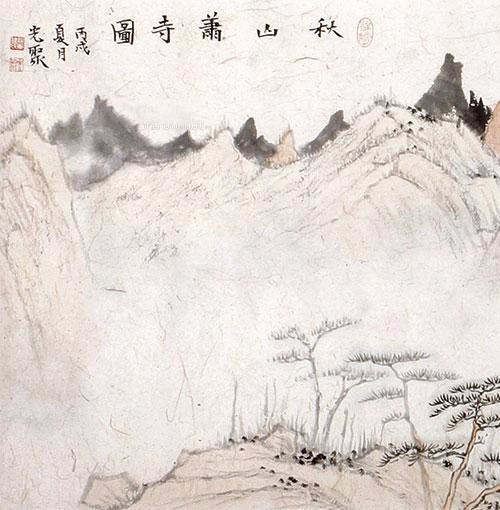 秋山蕭寺圖
丙戌
夏月
光聚